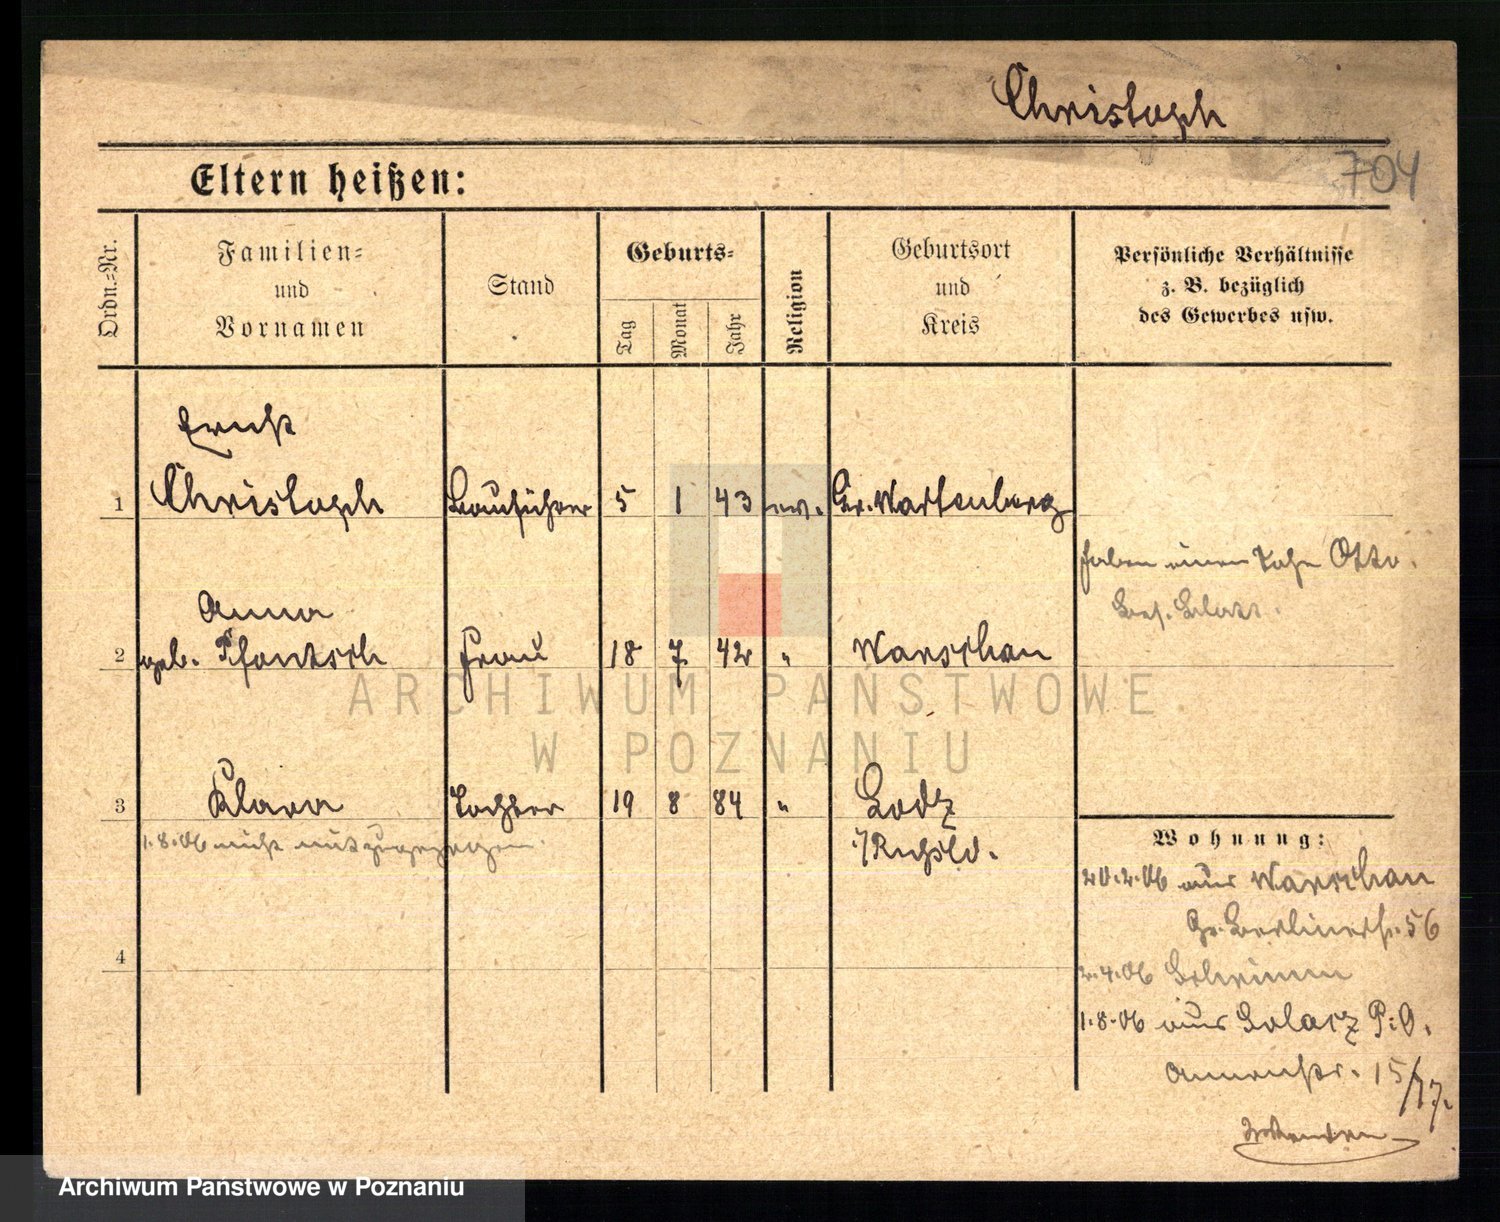 Christoph
704
Eltern heißen:
Ordn.=Nr.
Familien=
und
Vornamen
Stand
Geburts=
Tag
Monat
Jahr
Religion
Geburtsort
und
Kreis
Persönliche Verhältnisse
z. B. bezüglich
des Gewerbes usw.
Ernst
1 Christoph Bauführer 5 1 43 ev. Gr. Wartenberg
haben einen Sohn Otto.
Anna
2 geb. Pfantsch Frau 18 7 42 " Warschau
ARCHIWUM PAŃSTWOWE
W POZNANIU
3 Klara Tochter 19 8 84 " Lodz
1.8.06 nicht mitzugezogen.
i/Rußld.
Wohnung:
20.2.06 aus Warschau
Gr. Berlinerstr. 56
2.4.06
1.8.06 aus Solacz P.O.
Annenstr. 15/17.
4
Archiwum Państwowe w Poznaniu